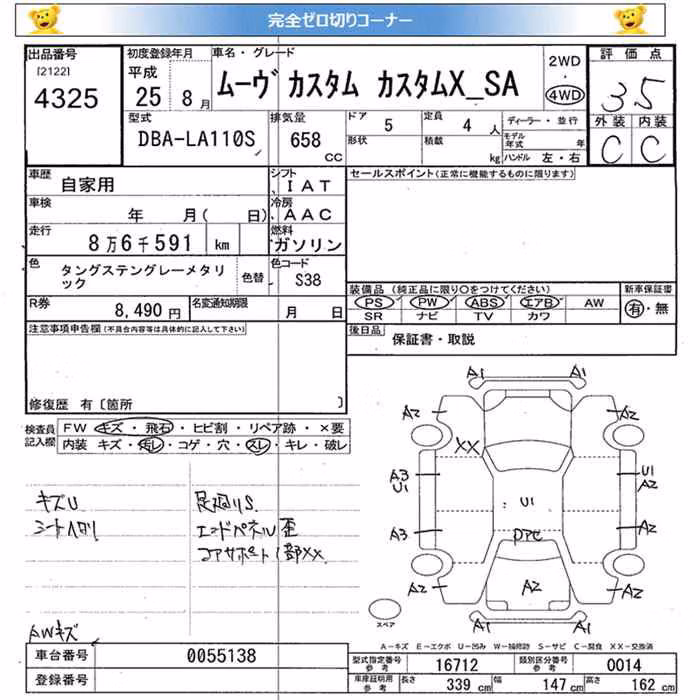 完全ゼロ切りコーナー
出品番号
[2122]
4325
初度登録年月
平成
25 8月
車名・グレード
ムーヴ カスタム カスタムX_SA
2WD
・
4WD
評価点
3.5
型式
DBA-LA110S
排気量
658
CC
ドア 5
定員 4 人
形状
積載 kg
ディーラー・並行
モデル年式 年
ハンドル 左・右
外装 内装
C C
車歴 自家用
シフト IAT
車検 年 月( 日)
冷房 AAC
走行 8万6千591 km
燃料 ガソリン
色 タングステングレーメタリック
色替
色コード S38
R券 8,490円
名変通知期限 月 日
セールスポイント(正常に機能するものに限ります)
装備品(純正品に限り○をつけてください)
PS PW ABS エアB AW
SR ナビ TV カワ
新車保証書
有・無
後日品 保証書・取説
注意事項申告欄(不具合内容等は具体的に記入して下さい)
修復歴 有〔箇所 〕
検査員記入欄
FW キズ・飛石・ヒビ割・リペア跡・×要
内装 キズ・汚レ・コゲ・穴・スレ・キレ・破レ
キズU
シートヘタリ
AWキズ
足廻りS
エンドパネル歪
コアサポート1部XX
A1 A1
A2 A2
XX
A3 U1
U1 A2
U1
A3 A2
アセ
A2 A2 A2
A1 A1
スペア
A-キズ E-エクボ U-凹み W-補修跡 S-サビ C-腐食 XX-交換済
車台番号 0055138
登録番号
型式指定番号 参考 16712
類別区分番号 参考 0014
車庫証明用 参考 長さ 339cm 幅 147cm 高さ 162cm